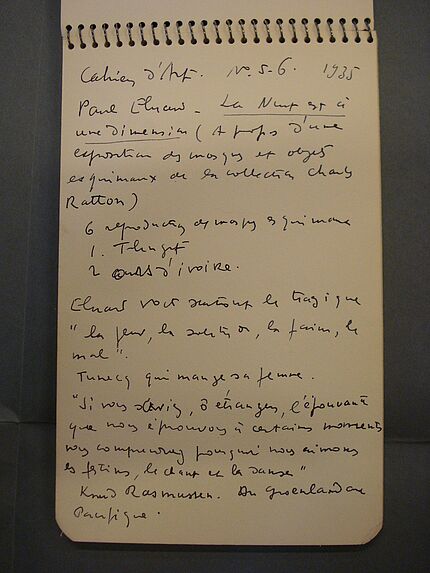 Cahiers d'Art. No. 5-6. 1935
Paul Eluard - La Nuit est à
une dimension (A propos d'une
exposition de masques et objets
esquimaux de la collection Charles
Ratton)
6 reproductions de masques esquimaux
1. Tlingit
2 d'ivoire.
Eluard voit surtout le tragique
"la peur, la solitude, la faim, le
mal".
qui mange sa femme.
"Si vous saviez, ô étrangers, l'épouvante
que nous éprouvons à certains moments
vous comprendriez pourquoi nous aimons
les festins, le chant et la danse"
Knud Rasmussen. Du Groenland au
Pacifique.